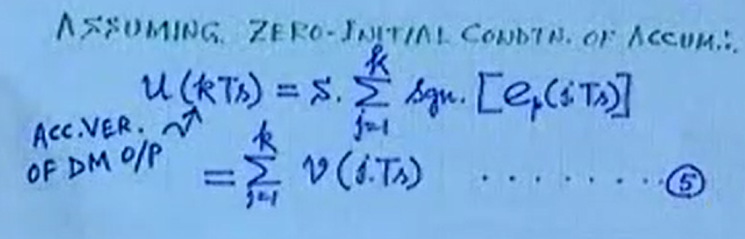 ASSUMING ZERO-INITIAL CONDTN. OF ACCUM.:
u(kTs) = S. ∑_{j=1}^{k} sgn. [e_p(j.Ts)]
ACC. VER. OF DM O/P
= ∑_{j=1}^{k} v(j.Ts) ........ ⑤